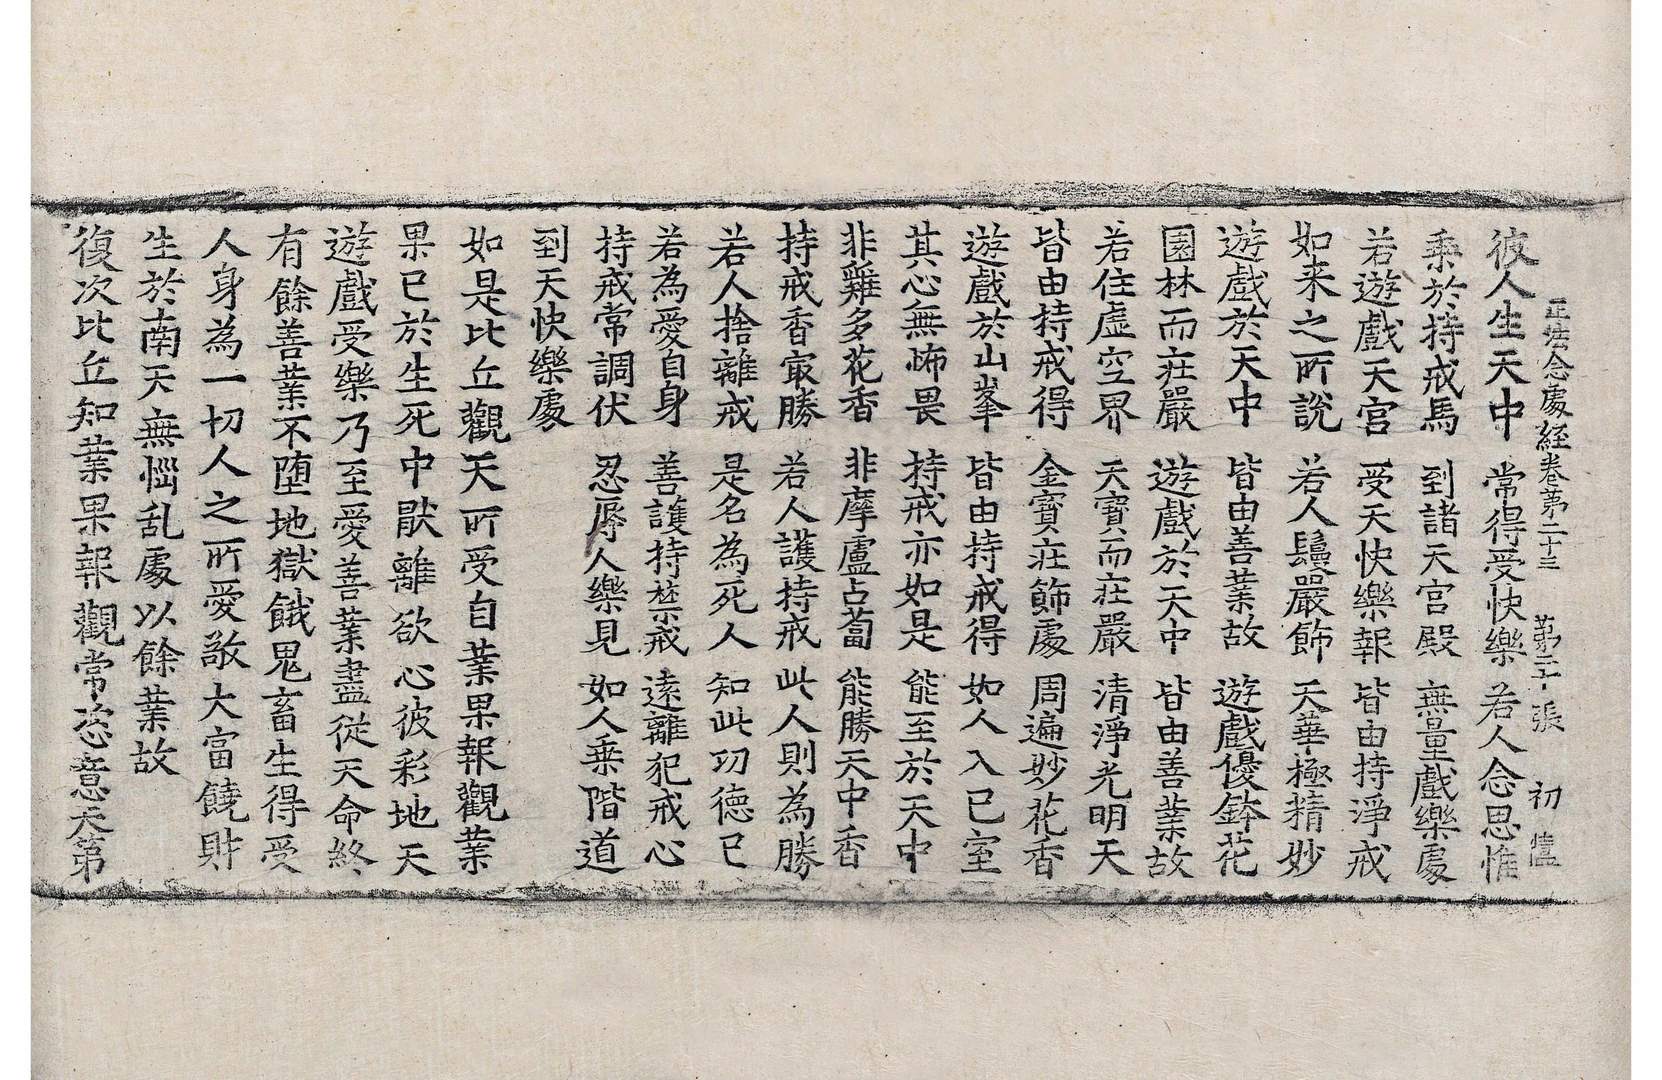 正法念處経卷第二十三 第二十張 初
彼人生天中 常得受快樂 若人念思惟
乘於持戒馬 到諸天宮殿 無量戲樂處
若遊戲天宮 受天快樂報 皆由持淨戒
如来之所說 若人鬘嚴飾 天華極精妙
遊戲於天中 皆由善業故 遊戲優鉢花
園林而莊嚴 遊戲於天中 皆由善業故
若住虛空界 天寶而莊嚴 清淨光明天
皆由持戒得 金寶莊飾處 周遍妙花香
遊戲於山峯 皆由持戒得 如人入己室
其心無怖畏 持戒亦如是 能至於天中
非雞多花香 非摩盧占蔔 能勝天中香
持戒香㝡勝 若人護持戒 此人則為勝
若人捨離戒 是名為死人 知此功德已
若為愛自身 善護持禁戒 遠離犯戒心
持戒常調伏 忍辱人樂見 如人乘階道
到天快樂處
如是比丘觀天所受自業果報觀業
果已於生死中猒離欲心彼彩地天
遊戲受樂乃至愛善業盡從天命終
有餘善業不墮地獄餓鬼畜生得受
人身為一切人之所愛敬大富饒財
生於南天無惱乱處以餘業故
復次比丘知業果報觀常恣意天第